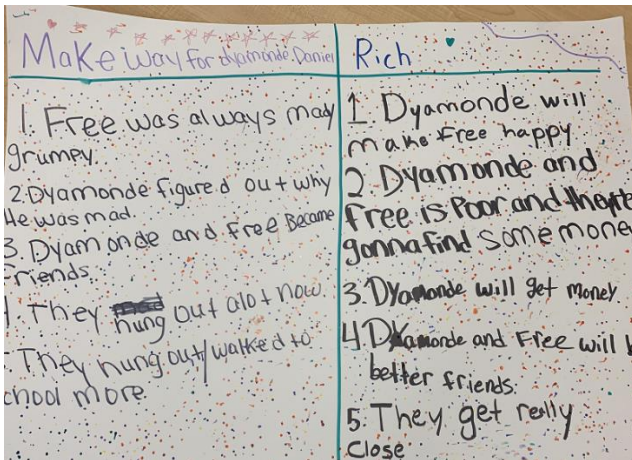 Make way for dyamonde Daniel
1. Free was always mad/
grumpy.
2. Dyamonde figured out why
He was mad.
3. Dyamonde and Free Became
Friends.
They hung out alot now
They hung out/walked to
chool more.
Rich
1. Dyamonde will
make free happy
2. Dyamonde and
Free is Poor and they're
gonna find some money
3. Dyamonde will get money
4. Dyamonde and Free will b
better friends.
5. They get really
Close